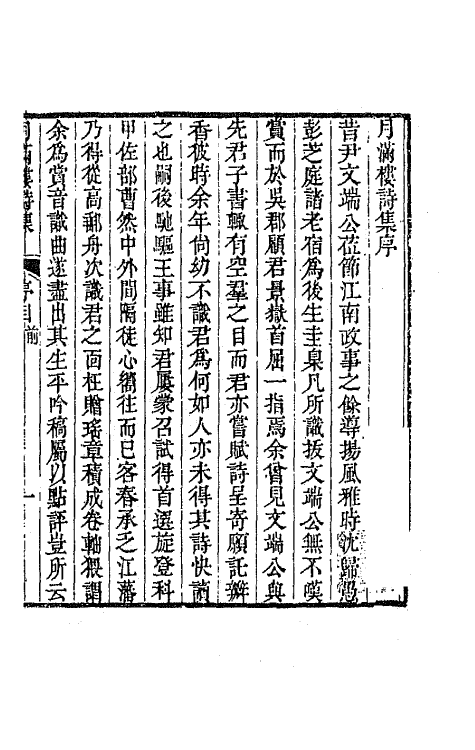 月滿樓詩集序
昔尹文端公莅節江南政事之餘導揚風雅時沈歸愚
彭芝庭諸老宿為後生圭臬凡所識拔文端公無不嘆
賞而於吳郡顧君景嶽首屈一指焉余曾見文端公與
先君子書輒有空羣之目而君亦嘗賦詩呈寄願託瓣
香彼時余年尚幼不識君為何如人亦未得其詩快讀
之也嗣後馳驅王事雖知君屢蒙召試得首選旋登科
甲佐部曹然中外間隔徒心嚮往而已客春承乏江藩
乃得從高郵舟次識君之面枉贈瑤章積成卷軸猥謂
余為賞音識曲遂盡出其生平吟稿屬以點評豈所云
月滿樓詩集
序目
前
一